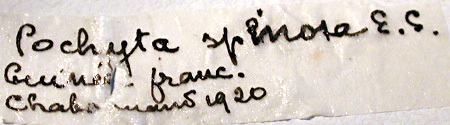 Pochyta spinosa E.S.
Guinée franc.
Chabanaud 1920